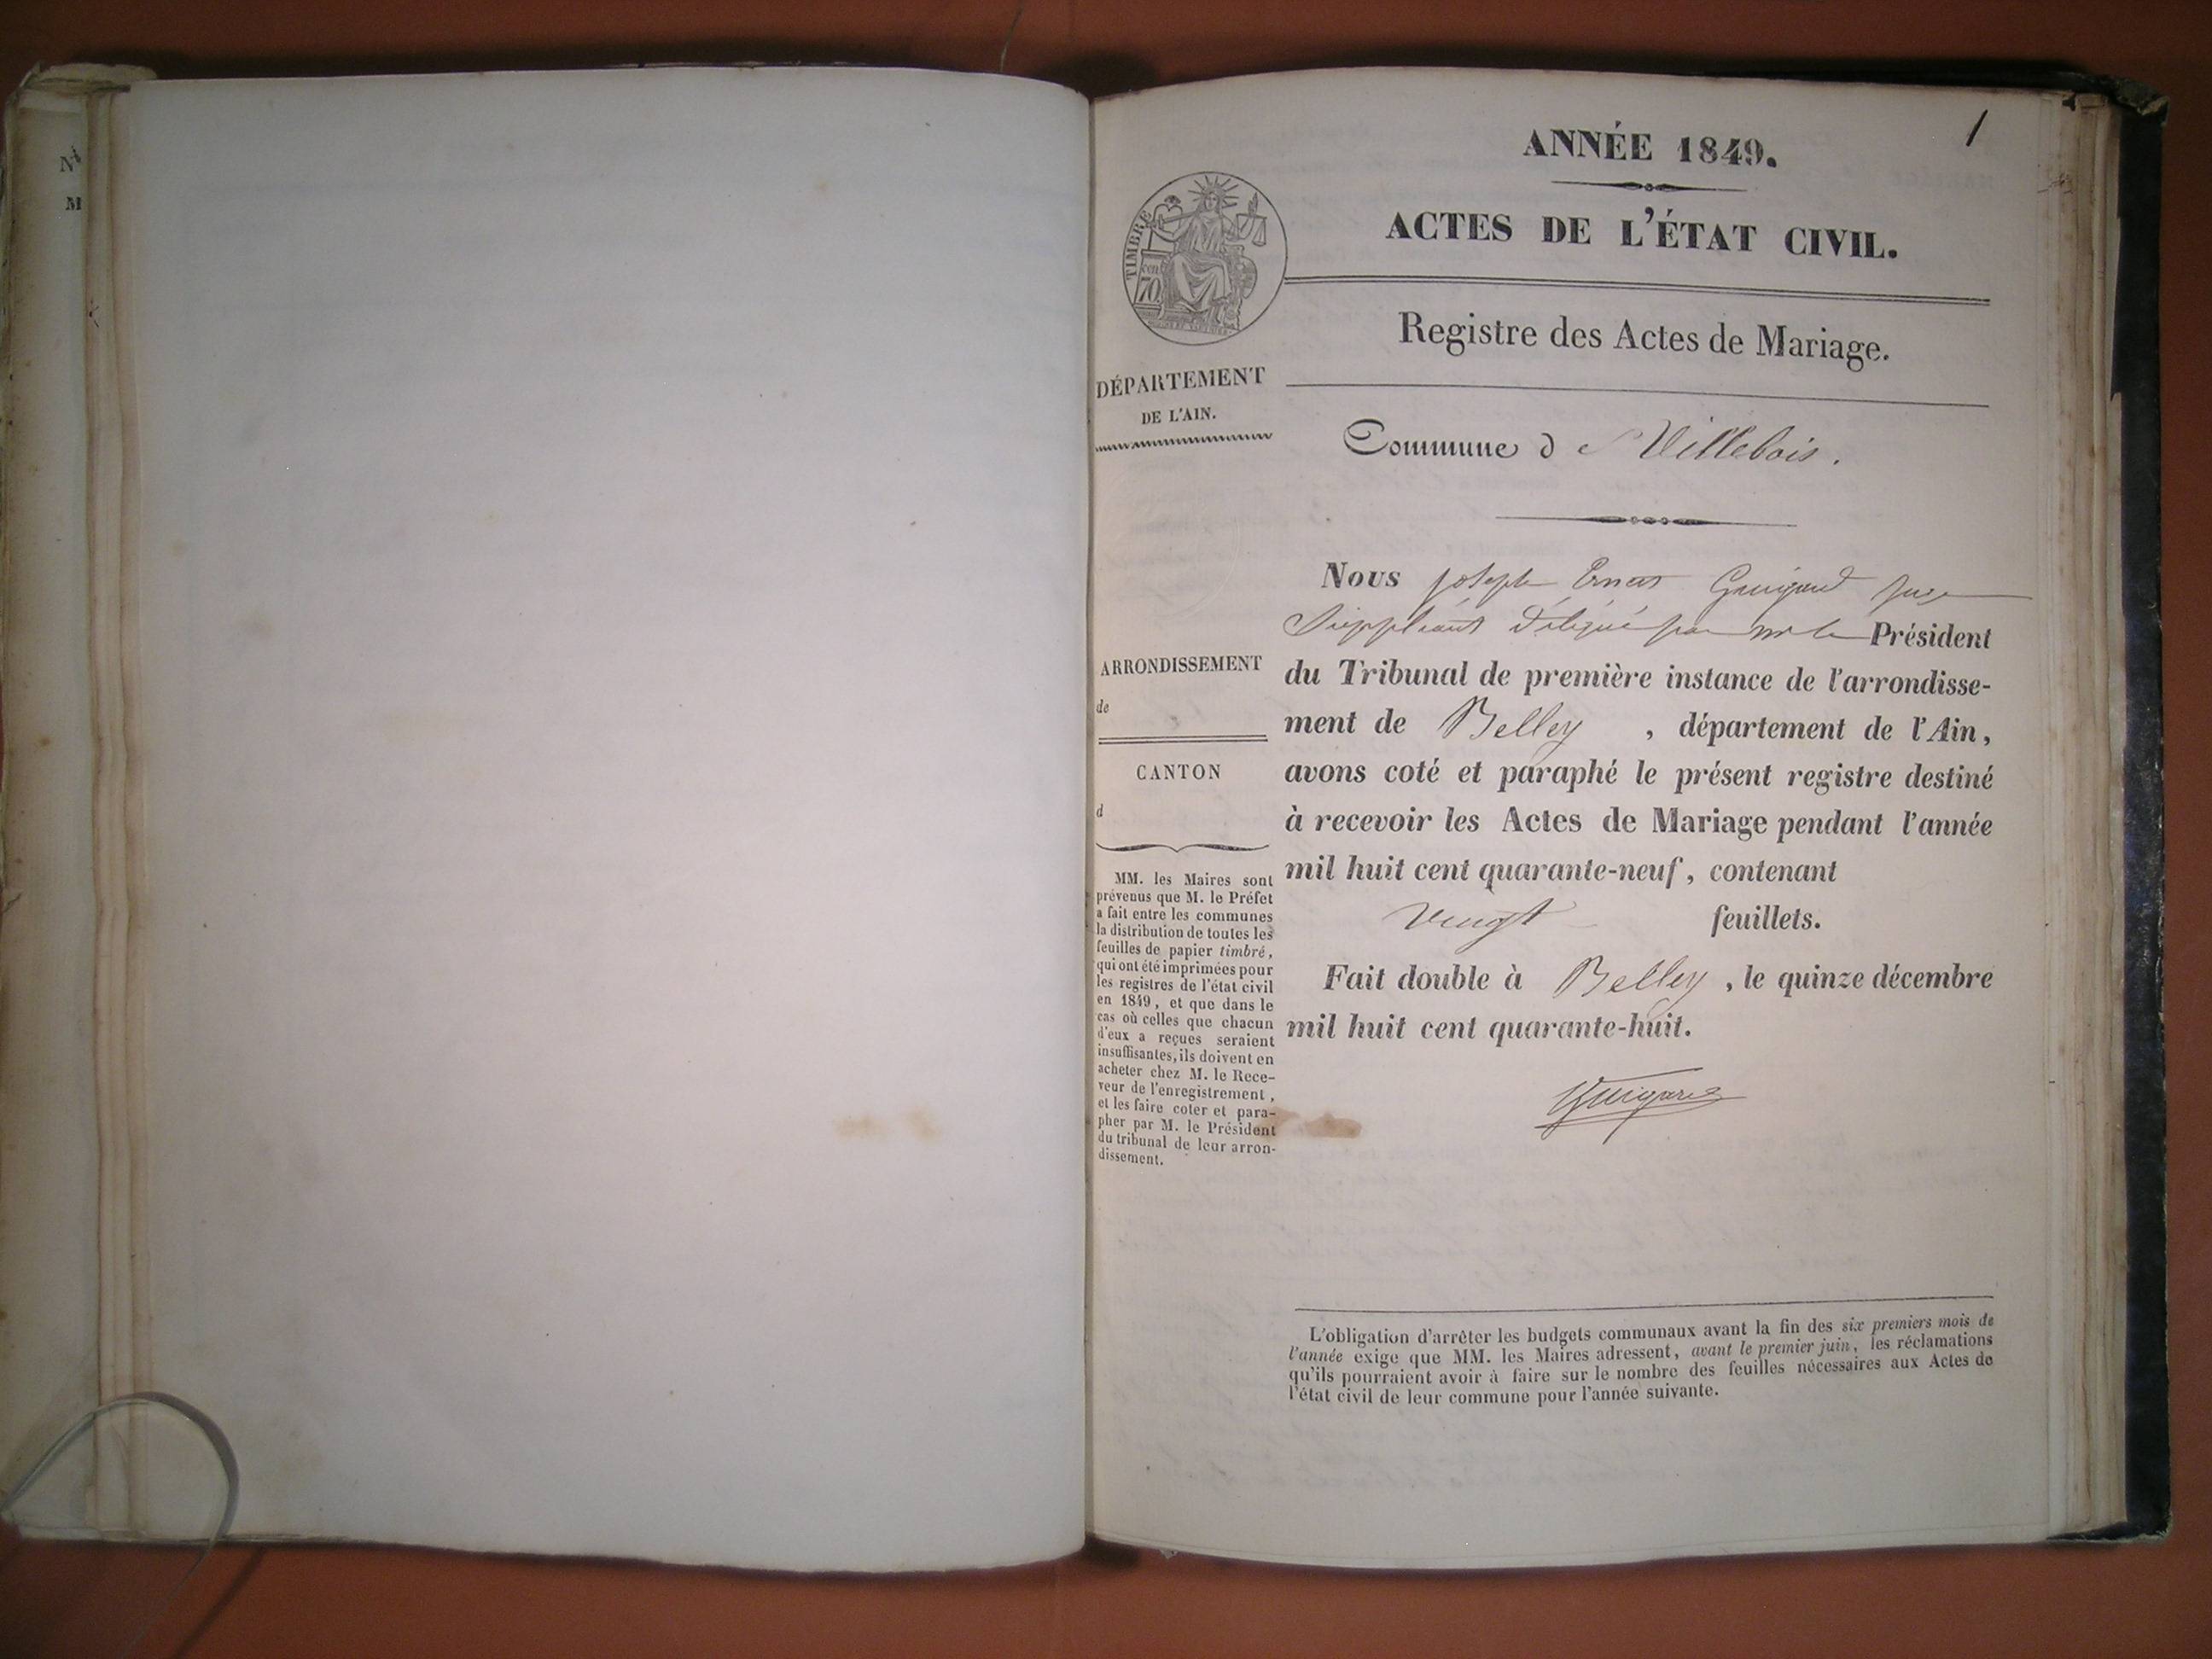 N
M
1
ANNÉE 1849.
ACTES DE L'ÉTAT CIVIL.
TIMBRE
70
Registre des Actes de Mariage.
DÉPARTEMENT
DE L'AIN.
Commune de Villebois.
Nous Joseph Ernest Guigard Juge
Suppléant délégué par Mr le Président
du Tribunal de première instance de l'arrondisse-
ment de Belley, département de l'Ain,
avons coté et paraphé le présent registre destiné
à recevoir les Actes de Mariage pendant l'année
mil huit cent quarante-neuf, contenant
vingt feuillets.
Fait double à Belley, le quinze décembre
mil huit cent quarante-huit.
Guigard
ARRONDISSEMENT
de
CANTON
d
MM. les Maires sont
prévenus que M. le Préfet
a fait entre les communes
la distribution de toutes les
feuilles de papier timbré,
qui ont été imprimées pour
les registres de l'état civil
en 1849, et que dans le
cas où celles que chacun
d'eux a reçues seraient
insuffisantes, ils doivent en
acheter chez M. le Rece-
veur de l'enregistrement,
et les faire coter et para-
pher par M. le Président
du tribunal de leur arron-
dissement.
L'obligation d'arrêter les budgets communaux avant la fin des six premiers mois de
l'année exige que MM. les Maires adressent, avant le premier juin, les réclamations
qu'ils pourraient avoir à faire sur le nombre des feuilles nécessaires aux Actes de
l'état civil de leur commune pour l'année suivante.